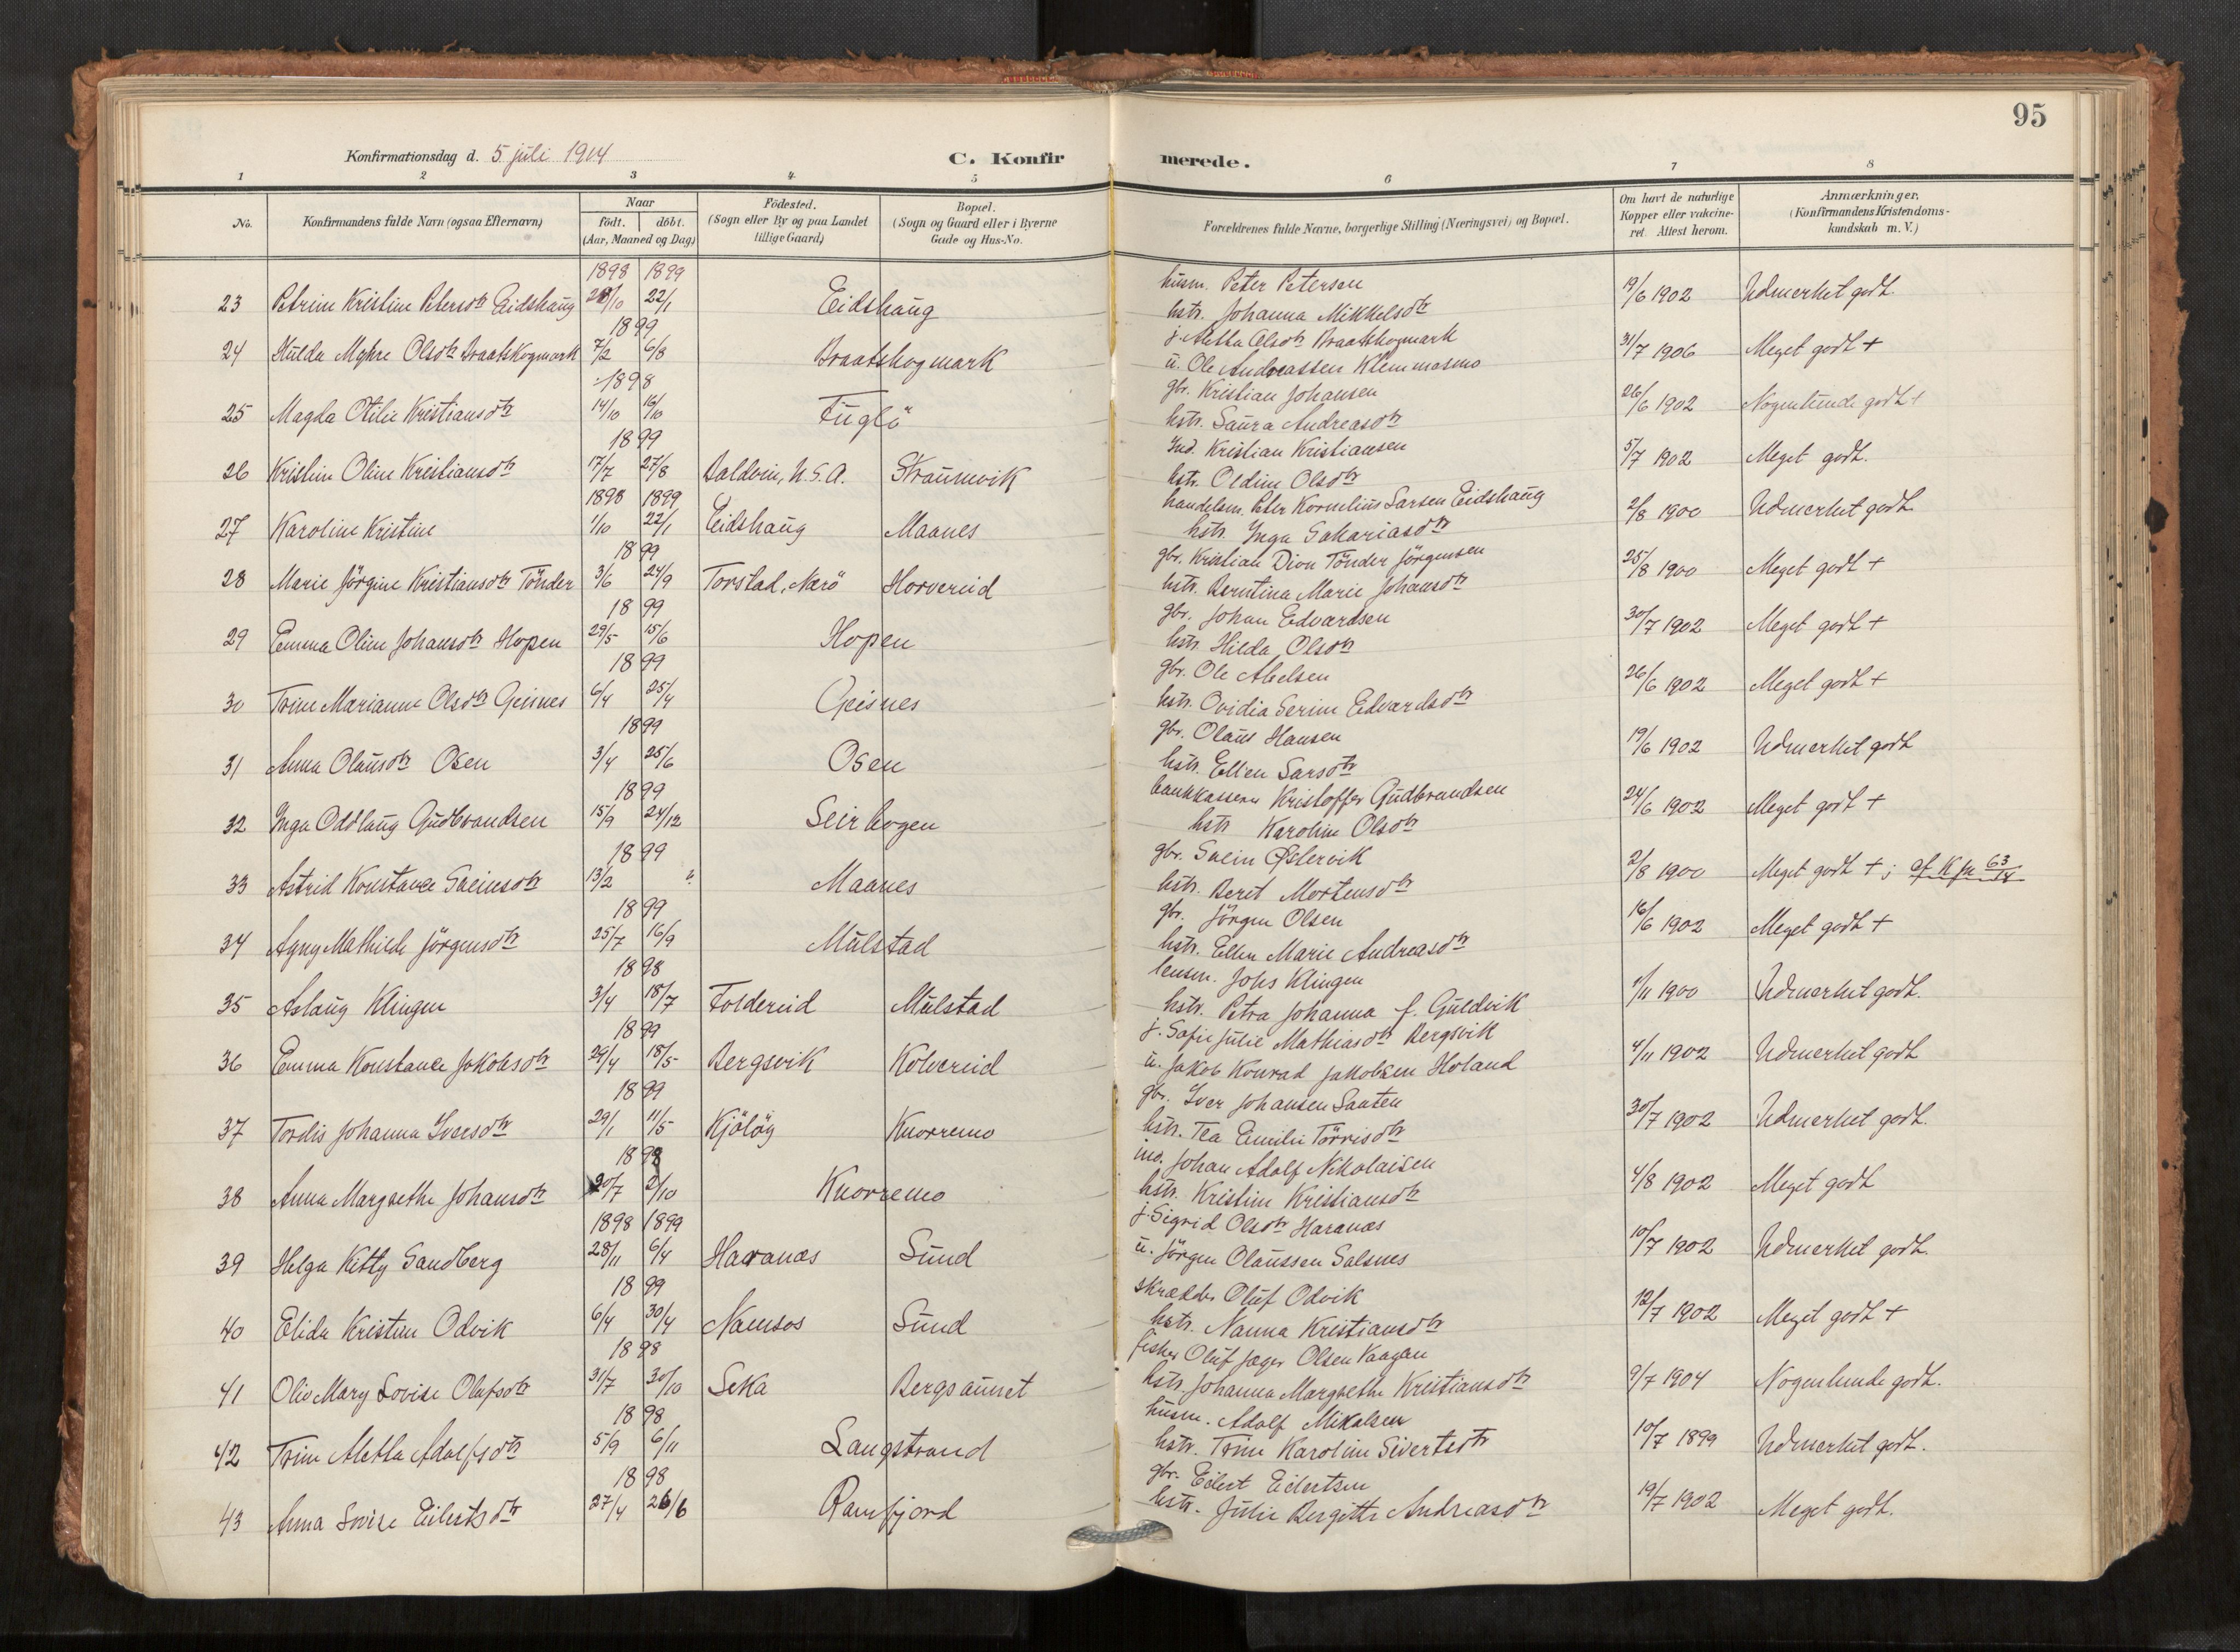 95
Konfirmationsdag d. 5 juli 1914
C. Konfirmerede.
1 2 3 4 5 6 7 8
No. Konfirmandens fulde Navn (ogsaa Efternavn) Naar født. døbt. (Aar, Maaned og Dag) Födested. (Sogn eller By og paa Landet tillige Gaard) Bopæl. (Sogn og Gaard eller i Byerne Gade og Hus-No. Forældrenes fulde Navne, borgerlige Stilling (Næringsvei) og Bopæl. Om havt de naturlige Kopper eller vakcineret. Attest herom. Anmærkninger. (Konfirmandens Kristendomskundskab m. V.)
1898 1899 husm. Peter Petersen
23 Petrine Kristine Petersdtr Eidshaug /10 22/1 Eidshaug hstr. Johanna Mikkelsdtr 19/6 1902 Udmerket godt
1899 j. Aletta Olsdtr Braatskogmark
24 Hulda Myhre Olsdtr Braatskogmark 7/2 6/8 Braatskogmark u. Ole Andreassen Klemmasmo 31/7 1906 Meget godt +
1898 gbr. Kristian Johansen
25 Magda Otilie Kristiansdtr 14/10 16/10 Fuglö hstr. Saura Andreasdtr 26/6 1902 Nogenlunde godt +
1899 Ind. Kristian Kristiansen
26 Kristine Oline Kristiansdtr 17/7 27/8 Baldvin, U.S.A. Straumvik hstr. Oldine Olsdtr 5/7 1902 Meget godt.
1898 1899 handelsm. Peter Kornelius Larsen Eidshaug
27 Karoline Kristine 1/10 22/1 Eidshaug Maanes hstr. Inga Sakariasdtr 2/8 1900 Udmerket godt
1899 gbr. Kristian Dion Tönder Jörgensen
28 Marie Jörgine Kristiansdtr Tönder 3/6 24/9 Torstad, Nærö Horvereid hstr. Berntina Marie Johansdtr 25/8 1900 Meget godt +
1899 gbr. Johan Edvardsen
29 Emma Oline Johansdtr Hopen 29/5 15/6 Hopen hstr. Hilda Olsdtr 30/7 1902 Meget godt +
1899 gbr. Ole Abelsen
30 Trine Marianne Olsdtr Geisnes 6/4 25/4 Geisnes hstr. Ovidia Serine Edvardsdtr 26/6 1902 Meget godt +
1899 gbr. Olaus Hansen
31 Anna Olausdtr Osen 3/4 25/6 Osen hstr. Ellen Larsdtr 19/6 1902 Udmerket godt
1899 bankkasserer Kristoffer Gudbrandsen
32 Inga Oddlaug Gudbrandsen 15/9 24/12 Seirbogen hstr Karoline Olsdtr 24/6 1902 Meget godt +
1899 gbr. Svein Østervik
33 Astrid Konstance Sveinsdtr 13/2 ? Maanes hstr. Beret Mortensdtr 2/8 1900 Meget godt +;
1899 gbr. Jörgen Olsen
34 Agny Mathilde Jörgensdtr 25/7 16/9 Mulstad hstr. Ellen Marie Andreasdtr 16/6 1902 Meget godt +
1898 lensm. Johs Klingen
35 Aslaug Klingen 3/4 18/7 Foldereid Mulstad hstr. Petra Johanna f. Guldvik 1/11 1900 Udmerket godt.
1899 j. Sofie Julie Mathiasdtr Bergsvik
36 Emma Konstance Jakobsdtr 29/4 18/5 Bergsvik Kolvereid u. Jakob Konrad Jakobsen Holand 4/11 1902 Udmerket godt
1899 gbr. Iver Johansen Sauten
37 Tordis Johanna Iversdtr 29/1 11/5 Kjölöy Knorremo hstr. Tea Emilie Törrisdtr 30/7 1902 Udmerket godt.
1898 ind. Johan Adolf Nikolaisen
38 Anna Margrethe Johansdtr 20/7 2/10 Knorremo hstr. Kristine Kristiansdtr 4/8 1902 Meget godt
1898 1899 j. Sigrid Olsdtr Haranæs
39 Helga Kitty Sandberg 28/11 6/4 Haranæs Sund u. Jörgen Olaussen Salsnes 10/7 1902 Udmerket godt.
1899 skrædder Oluf Odvik
40 Elida Kristine Odvik 6/4 30/4 Namsos Sund hstr. Nanna Kristiansdtr 12/7 1902 Meget godt +
1898 fisker Oluf Jæger Olsen Vaagan
41 Oliv Mary Lovise Olufsdtr 31/7 30/10 Leka Bergsaunet hstr. Johanna Margrethe Kristiansdtr 9/7 1904 Nogenlunde godt.
1898 husm. Adolf Mikalsen
42 Trine Aletta Adolfsdtr 5/9 6/11 Langstrand hstr. Trine Karoline Sivertsdtr 10/7 1899 Udmerket godt.
1898 gbr. Eilert Eilertsen
43 Anna Lovise Eilertsdtr 27/4 26/6 Ramfjord hstr. Julie Bergitte Andreasdtr 19/7 1902 Meget godt.